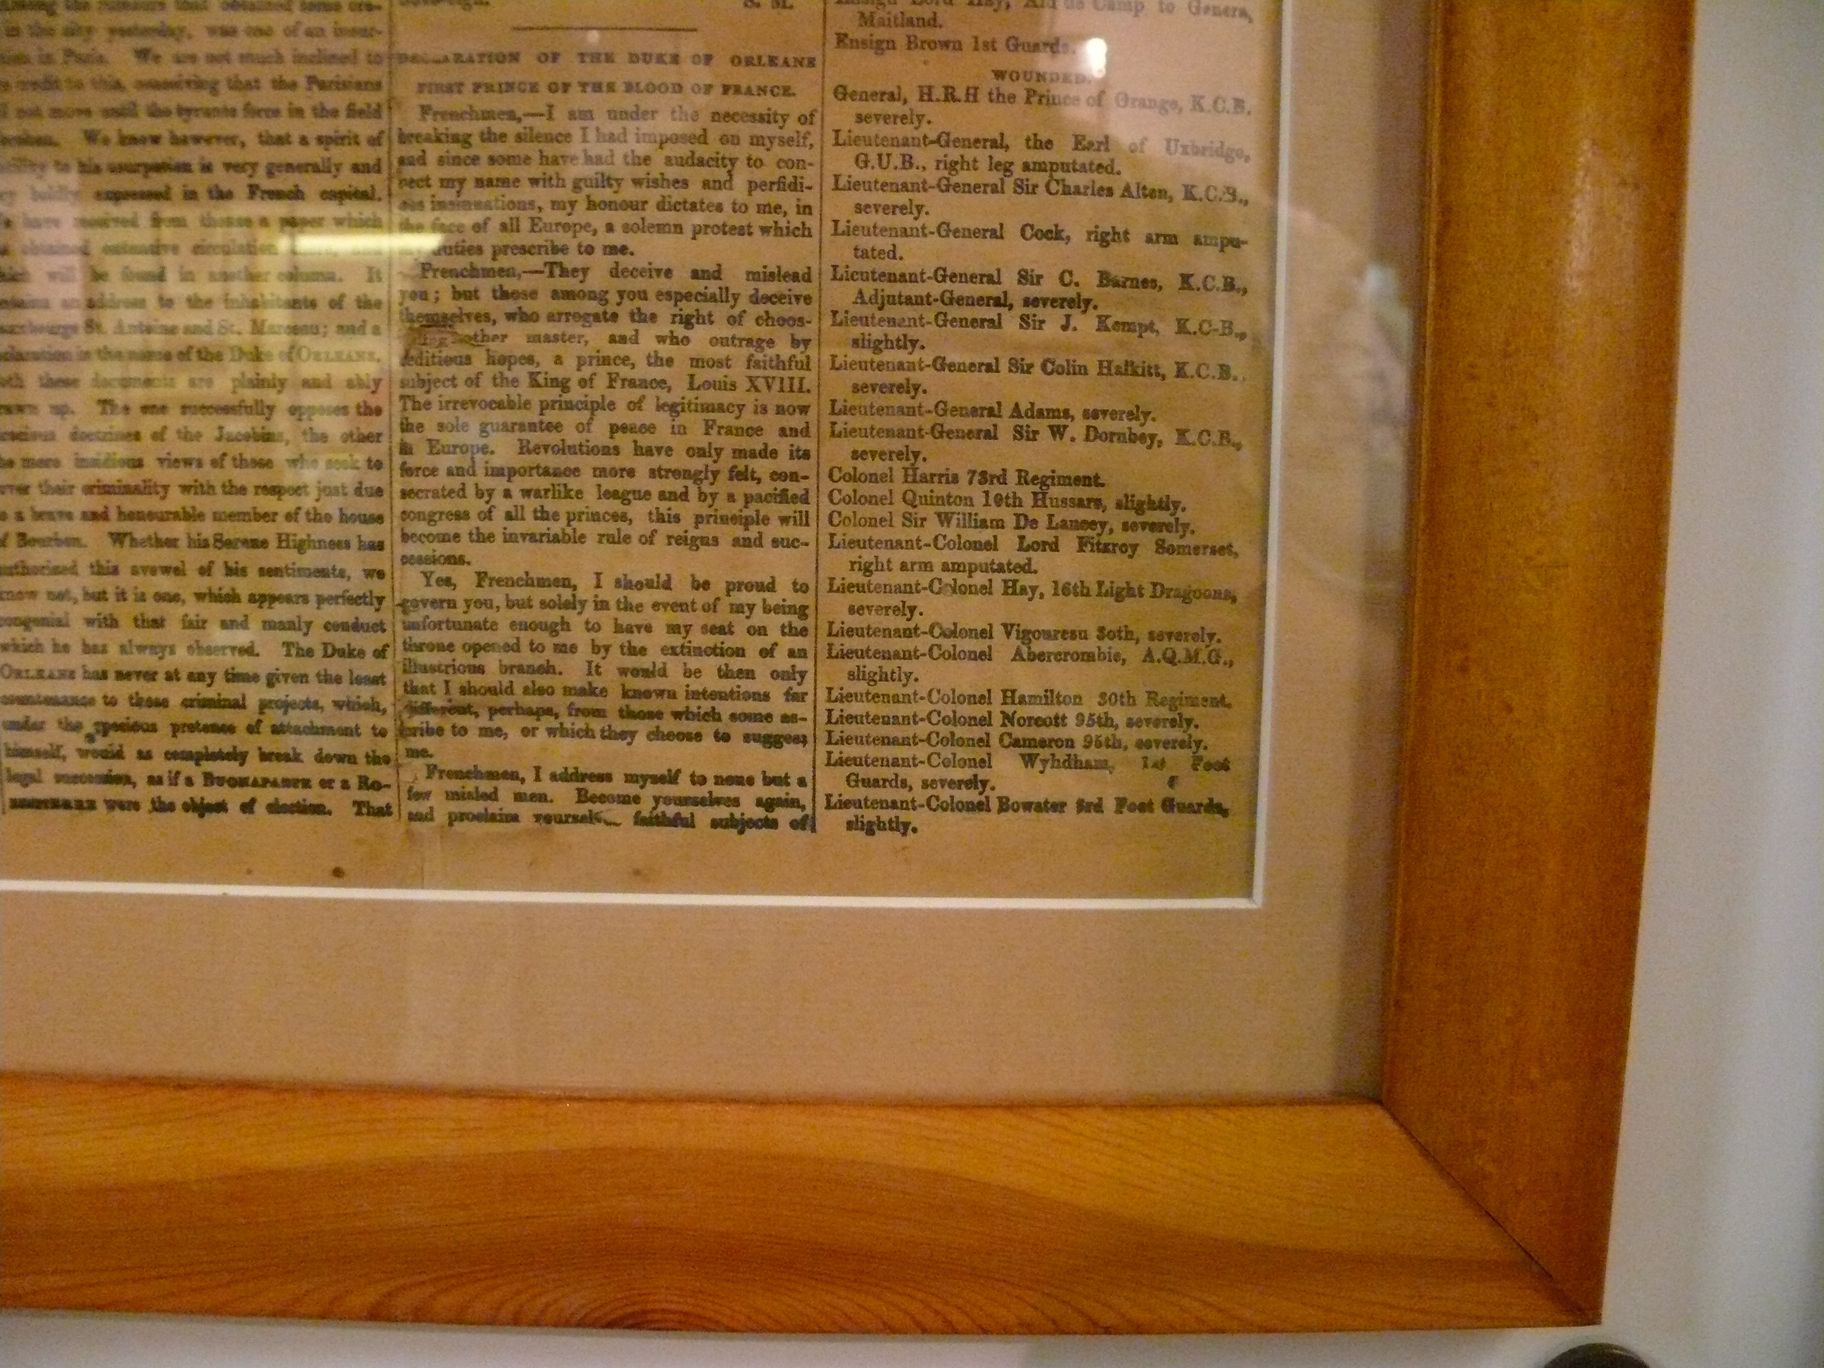 in the city yesterday, was one of an insur-
in Paris. We are not much inclined to
credit to this, conceiving that the Parisians
not move until the tyrants force in the field
We know however, that a spirit of
to his usurpation is very generally and
boldly expressed in the French capital.
have received from thence a paper which
obtained extensive circulation
will be found in another column. It
an address to the inhabitants of the
St. Antoine and St. Marceau; and a
in the name of the Duke of ORLEANS.
these documents are plainly and ably
up. The one successfully opposes the
doctrines of the Jacobins, the other
more insidious views of those who seek to
their criminality with the respect just due
a brave and honourable member of the house
of Bourbon. Whether his Serene Highness has
authorised this avowel of his sentiments, we
know not, but it is one, which appears perfectly
congenial with that fair and manly conduct
which he has always observed. The Duke of
ORLEANS has never at any time given the least
countenance to those criminal projects, which,
under the specious pretence of attachment to
himself, would as completely break down the
legal succession, as if a BUONAPARTE or a RO-
were the object of election. That
S. M.
OF THE DUKE OF ORLEANS
FIRST PRINCE OF THE BLOOD OF FRANCE.
Frenchmen,—I am under the necessity of
breaking the silence I had imposed on myself,
and since some have had the audacity to con-
nect my name with guilty wishes and perfidi-
ous insinuations, my honour dictates to me, in
the face of all Europe, a solemn protest which
duties prescribe to me.
Frenchmen,—They deceive and mislead
you; but those among you especially deceive
themselves, who arrogate the right of choos-
other master, and who outrage by
seditious hopes, a prince, the most faithful
subject of the King of France, Louis XVIII.
The irrevocable principle of legitimacy is now
the sole guarantee of peace in France and
in Europe. Revolutions have only made its
force and importance more strongly felt, con-
secrated by a warlike league and by a pacified
congress of all the princes, this principle will
become the invariable rule of reigns and suc-
cessions.
Yes, Frenchmen, I should be proud to
govern you, but solely in the event of my being
unfortunate enough to have my seat on the
throne opened to me by the extinction of an
illustrious branch. It would be then only
that I should also make known intentions far
different, perhaps, from those which some as-
cribe to me, or which they choose to suggest
me.
Frenchmen, I address myself to none but a
few misled men. Become yourselves again,
and proclaim faithful subjects of
Ensign Lord Hay, Aid us Camp to Genera,
Maitland.
Ensign Brown 1st Guards.
WOUNDED.
General, H.R.H the Prince of Orange, K.C.B.
severely.
Lieutenant-General, the Earl of Uxbridge,
G.U.B., right leg amputated.
Lieutenant-General Sir Charles Alten, K.C.B.,
severely.
Lieutenant-General Cock, right arm ampu-
tated.
Lieutenant-General Sir C. Barnes, K.C.B.,
Adjutant-General, severely.
Lieutenant-General Sir J. Kempt, K.C-B.,
slightly.
Lieutenant-General Sir Colin Halkitt, K.C.B.
severely.
Lieutenant-General Adams, severely.
Lieutenant-General Sir W. Dornbey, K.C.B.,
severely.
Colonel Harris 73rd Regiment.
Colonel Quinton 10th Hussars, slightly.
Colonel Sir William De Lancey, severely.
Lieutenant-Colonel Lord Fitzroy Somerset,
right arm amputated.
Lieutenant-Colonel Hay, 16th Light Dragoons,
severely.
Lieutenant-Colonel Vigouresu 30th, severely.
Lieutenant-Colonel Abercrombie, A.Q.M.G.,
slightly.
Lieutenant-Colonel Hamilton 30th Regiment.
Lieutenant-Colonel Norcott 95th, severely.
Lieutenant-Colonel Cameron 95th, severely.
Lieutenant-Colonel Wyhdham, 1st Foot
Guards, severely.
Lieutenant-Colonel Bowater 3rd Foot Guards,
slightly.